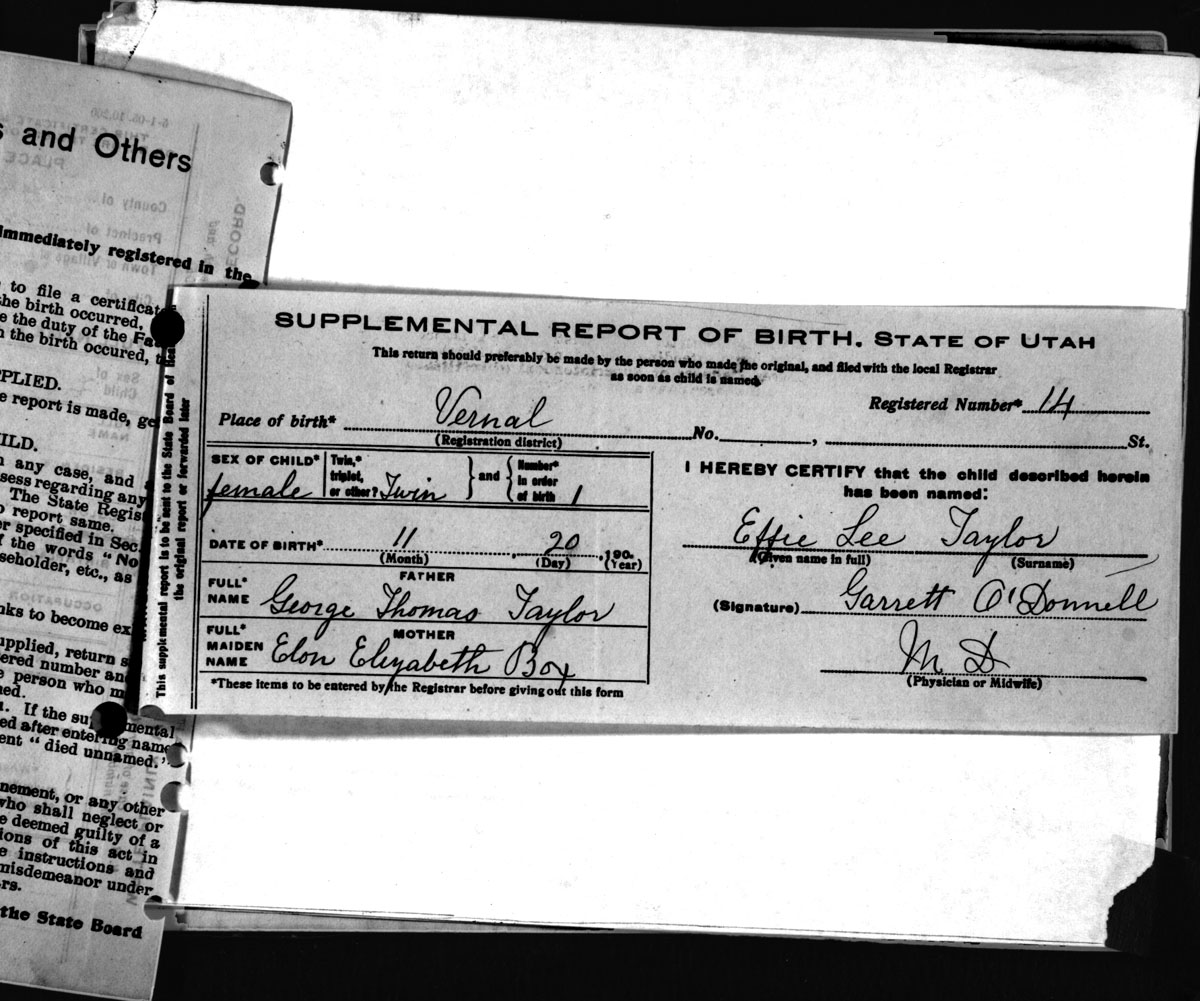 s and Others
immediately registered in the
to file a certificate
the birth occurred,
e the duty of the Fa
n the birth occured, t
PPLIED.
e report is made, ge
ILD.
n any case, and
sess regarding any
The State Regist
o report same.
er specified in Sec.
f the words "No
seholder, etc., as
nks to become ex
upplied, return s
ered number and
e person who m
ned.
1. If the supplemental
ed after entering name
ent "died unnamed."
nement, or any other
who shall neglect or
e deemed guilty of a
ions of this act in
e instructions and
misdemeanor under
rs.
the State Board
5-1-06-10,200
PLACE
County of
Precinct of
Town or Village
RECORD.
Sex of
Child
NAME
OCCUPATION
This supplemental report is to be sent to the State Board of
the original report or forwarded later
SUPPLEMENTAL REPORT OF BIRTH. STATE OF UTAH
This return should preferably be made by the person who made the original, and filed with the local Registrar
as soon as child is named.
Registered Number* 14
Place of birth* Vernal No. , St.
(Registration district)
SEX OF CHILD* female
Twin,* triplet, or other? Twin
and
Number* in order of birth 1
DATE OF BIRTH* 11 , 20 , 190
(Month) (Day) (Year)
FATHER
FULL* NAME George Thomas Taylor
MOTHER
FULL* MAIDEN NAME Elon Elizabeth Box
*These items to be entered by the Registrar before giving out this form
I HEREBY CERTIFY that the child described herein
has been named:
Effie Lee Taylor
(Given name in full) (Surname)
(Signature) Garrett O'Donnell
M D
(Physician or Midwife)